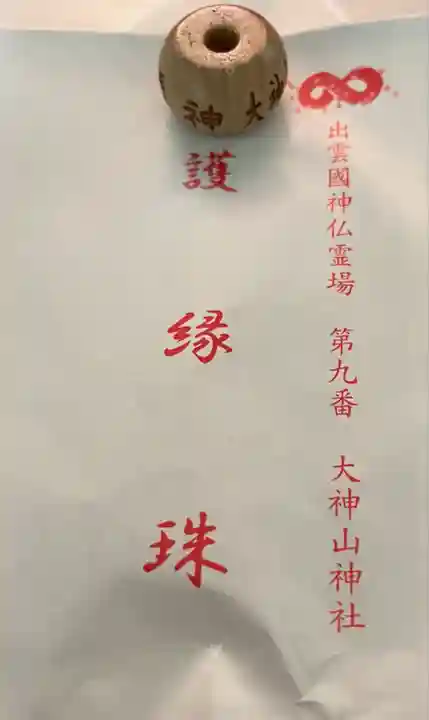 神大神
出雲國神仏霊場 第九番 大神山神社
護縁珠